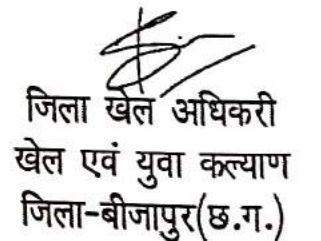 जिला खेल अधिकरी
खेल एवं युवा कल्याण
जिला-बीजापुर(छ.ग.)